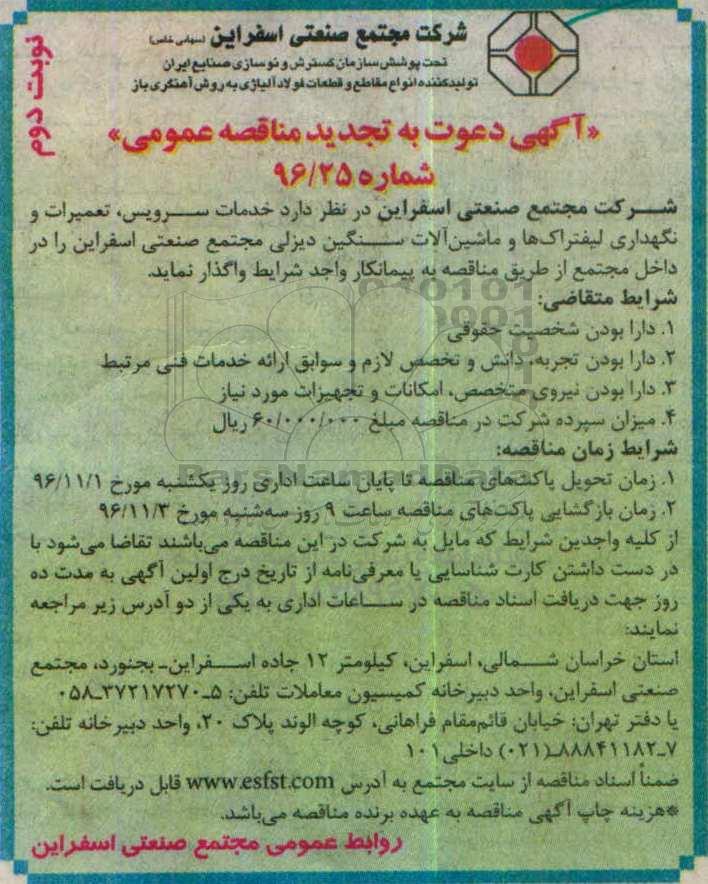 شرکت مجتمع صنعتی اسفراین (سهامی خاص)
تحت پوشش سازمان گسترش و نوسازی صنایع ایران
تولیدکننده انواع مقاطع و قطعات فولاد آلیاژی به روش آهنگری باز
نوبت دوم
«آگهی دعوت به تجدید مناقصه عمومی»
شماره ۹۶/۲۵
شرکت مجتمع صنعتی اسفراین در نظر دارد خدمات سرویس، تعمیرات و
نگهداری لیفتراک‌ها و ماشین‌آلات سنگین دیزلی مجتمع صنعتی اسفراین را در
داخل مجتمع از طریق مناقصه به پیمانکار واجد شرایط واگذار نماید.
شرایط متقاضی:
۱. دارا بودن شخصیت حقوقی
۲. دارا بودن تجربه، دانش و تخصص لازم و سوابق ارائه خدمات فنی مرتبط
۳. دارا بودن نیروی متخصص، امکانات و تجهیزات مورد نیاز
۴. میزان سپرده شرکت در مناقصه مبلغ ۶۰/۰۰۰/۰۰۰ ریال
شرایط زمان مناقصه:
ParsNamadData
۱. زمان تحویل پاکت‌های مناقصه تا پایان ساعت اداری روز یکشنبه مورخ ۹۶/۱۱/۱
۲. زمان بازگشایی پاکت‌های مناقصه ساعت ۹ روز سه‌شنبه مورخ ۹۶/۱۱/۳
از کلیه واجدین شرایط که مایل به شرکت در این مناقصه می‌باشند تقاضا می‌شود با
در دست داشتن کارت شناسایی یا معرفی‌نامه از تاریخ درج اولین آگهی به مدت ده
روز جهت دریافت اسناد مناقصه در ساعات اداری به یکی از دو آدرس زیر مراجعه
نمایند:
استان خراسان شمالی، اسفراین، کیلومتر ۱۲ جاده اسفراین-بجنورد، مجتمع
صنعتی اسفراین، واحد دبیرخانه کمیسیون معاملات تلفن: ۵-۰۵۸-۳۷۲۱۷۲۷۰
یا دفتر تهران: خیابان قائم‌مقام فراهانی، کوچه الوند پلاک ۲۰، واحد دبیرخانه تلفن:
۷-۸۸۸۴۱۱۸۲-(۰۲۱) داخلی ۱۰۱
ضمناً اسناد مناقصه از سایت مجتمع به آدرس www.esfst.com قابل دریافت است.
*هزینه چاپ آگهی مناقصه به عهده برنده مناقصه می‌باشد.
روابط عمومی مجتمع صنعتی اسفراین